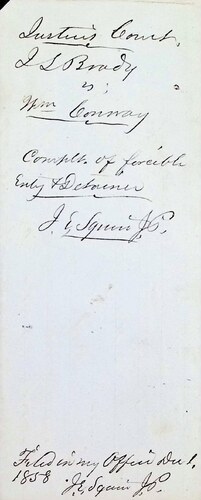 Justice's Court,
J S Brady
vs;
Wm Conway
Complt. of forcible
Entry & Detainer
J. E. Squier J.P.
Filed in my Office Dec 1.
1858 J. E. Squier J.P.